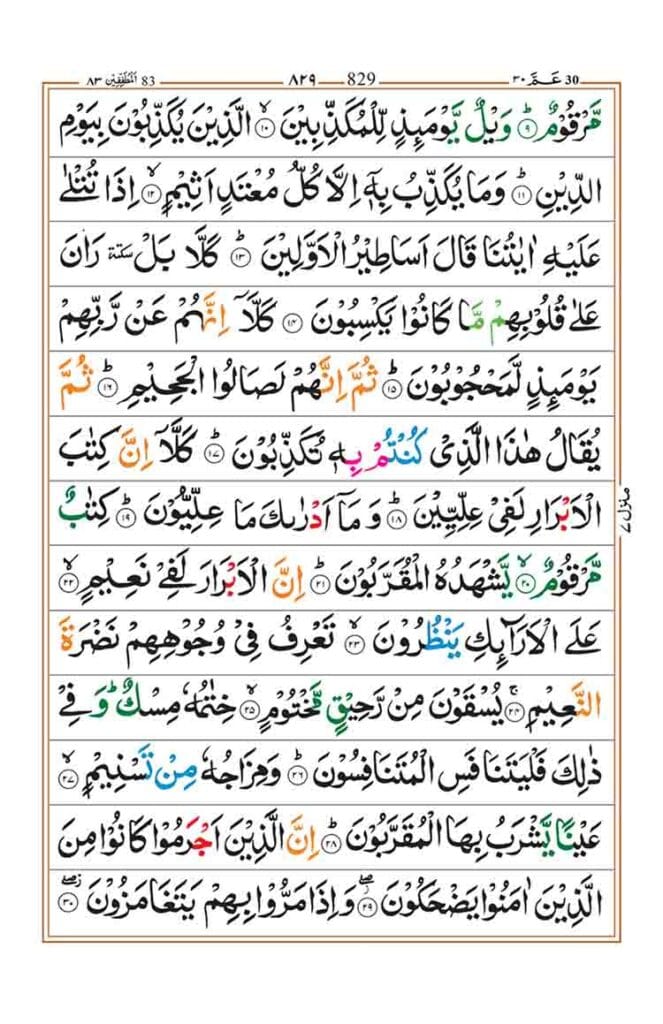 30 عَمَّ ٣٠ 829 ٨٢٩ 83 اَلْمُطَفِّفِيْن ٨٣
مَّرْقُوْمٌ ؕ﴿۹﴾ وَيْلٌ يَّوْمَئِذٍ لِّلْمُكَذِّبِيْنَ ۙ﴿۱۰﴾ الَّذِيْنَ يُكَذِّبُوْنَ بِيَوْمِ
الدِّيْنِ ؕ﴿۱۱﴾ وَمَا يُكَذِّبُ بِهٖۤ اِلَّا كُلُّ مُعْتَدٍ اَثِيْمٍ ۙ﴿۱۲﴾ اِذَا تُتْلٰى
عَلَيْهِ اٰيٰتُنَا قَالَ اَسَاطِيْرُ الْاَوَّلِيْنَ ؕ﴿۱۳﴾ كَلَّا بَلْ سكتة رَانَ
عَلٰى قُلُوْبِهِمْ مَّا كَانُوْا يَكْسِبُوْنَ ﴿۱۴﴾ كَلَّاۤ اِنَّهُمْ عَنْ رَّبِّهِمْ
يَوْمَئِذٍ لَّمَحْجُوْبُوْنَ ؕ﴿۱۵﴾ ثُمَّ اِنَّهُمْ لَصَالُوا الْجَحِيْمِ ؕ﴿۱۶﴾ ثُمَّ
يُقَالُ هٰذَا الَّذِىْ كُنْتُمْ بِهٖ تُكَذِّبُوْنَ ؕ﴿۱۷﴾ كَلَّاۤ اِنَّ كِتٰبَ
الْاَبْرَارِ لَفِىْ عِلِّيِّيْنَ ؕ﴿۱۸﴾ وَ مَاۤ اَدْرٰىكَ مَا عِلِّيُّوْنَ ؕ﴿۱۹﴾ كِتٰبٌ
مَّرْقُوْمٌ ۙ﴿۲۰﴾ يَّشْهَدُهُ الْمُقَرَّبُوْنَ ؕ﴿۲۱﴾ اِنَّ الْاَبْرَارَ لَفِىْ نَعِيْمٍ ۙ﴿۲۲﴾
عَلَى الْاَرَآئِكِ يَنْظُرُوْنَ ۙ﴿۲۳﴾ تَعْرِفُ فِىْ وُجُوْهِهِمْ نَضْرَةَ
النَّعِيْمِ ۚ﴿۲۴﴾ يُسْقَوْنَ مِنْ رَّحِيْقٍ مَّخْتُوْمٍ ۙ﴿۲۵﴾ خِتٰمُهٗ مِسْكٌ ؕ وَ فِىْ
ذٰلِكَ فَلْيَتَنَافَسِ الْمُتَنَافِسُوْنَ ؕ﴿۲۶﴾ وَمِزَاجُهٗ مِنْ تَسْنِيْمٍ ۙ﴿۲۷﴾
عَيْنًا يَّشْرَبُ بِهَا الْمُقَرَّبُوْنَ ؕ﴿۲۸﴾ اِنَّ الَّذِيْنَ اَجْرَمُوْا كَانُوْا مِنَ
الَّذِيْنَ اٰمَنُوْا يَضْحَكُوْنَ ۖ﴿۲۹﴾ وَاِذَا مَرُّوْا بِهِمْ يَتَغَامَزُوْنَ ۖ﴿۳۰﴾
منزل ٧